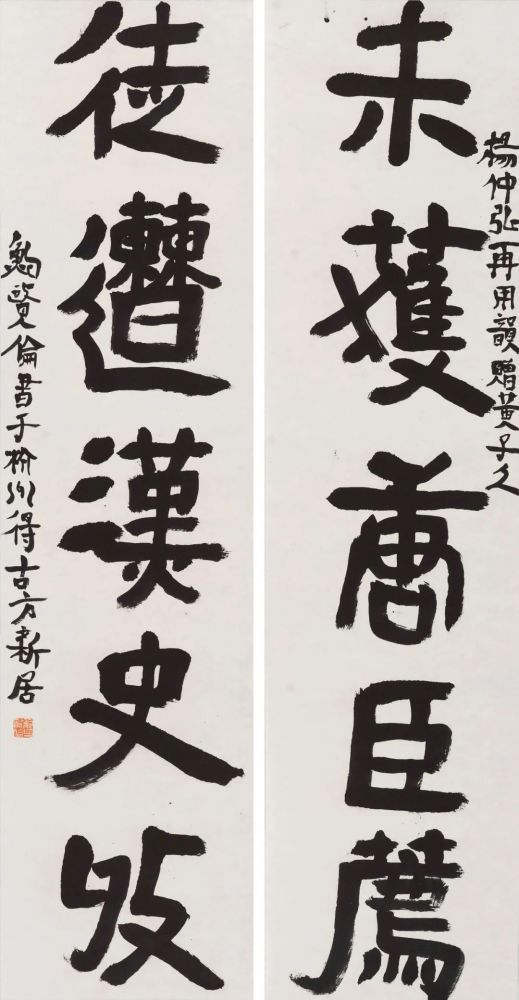 楊仲弘再用韻贈黃子久
未獲唐臣薦
徒遭漢史收
倫書于得古方新居